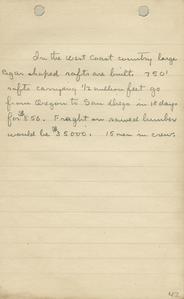 In the West Coast country large
cigar shaped rafts are built. 750'
rafts carrying ½ million feet go
from Oregon to San Diego in 18 days
for $850. Freight on sawed lumber
would be $35000. 15 men in crew.
42